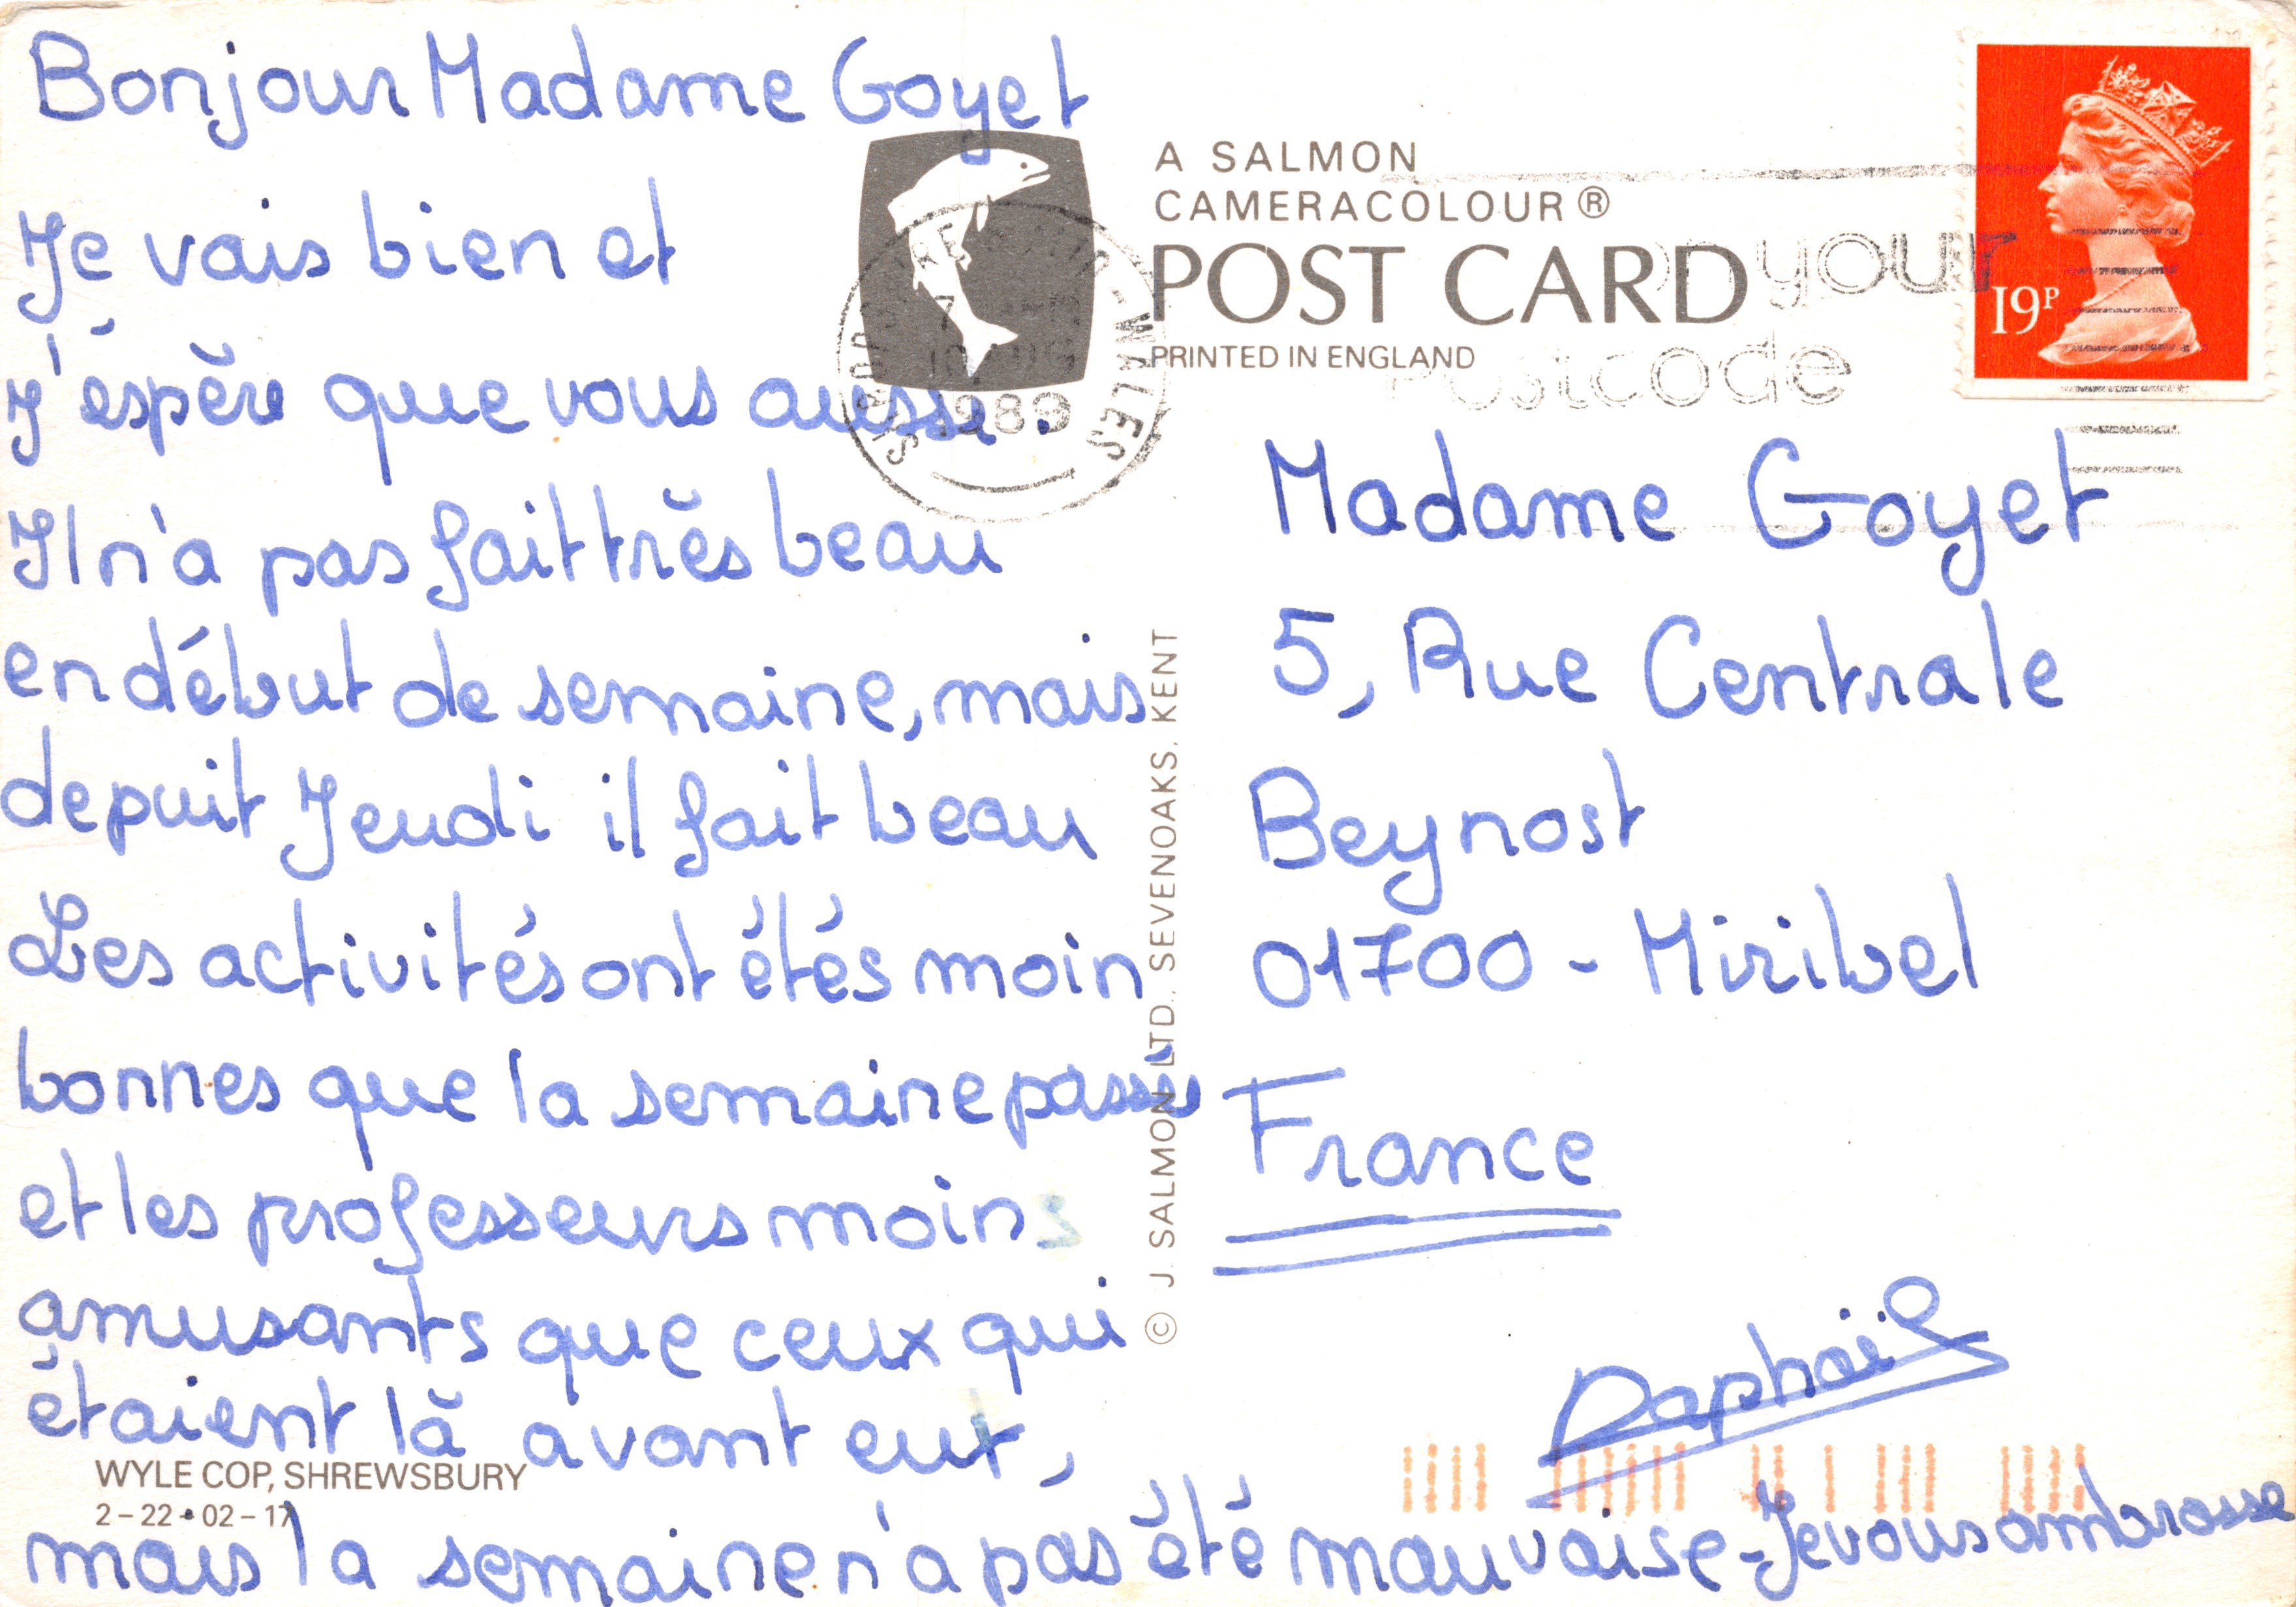 Bonjour Madame Goyet
Je vais bien et
j'éspère que vous aussi.
Il n'a pas fait très beau
en début de semaine, mais
depuit Jeudi il fait beau
Les activités ont étés moin
bonnes que la semaine passés
et les professeurs moins
amusants que ceux qui
étaient là avant eux,
mais la semaine n'a pas été mauvaise - Je vous ambrasse
Raphaël
A SALMON
CAMERACOLOUR®
POST CARD
PRINTED IN ENGLAND
your
postcode
19P
10 AUG
1989
Madame Goyet
5, Rue Centrale
Beynost
01700 - Miribel
France
© J. SALMON LTD., SEVENOAKS, KENT
WYLE COP, SHREWSBURY
2-22-02-17